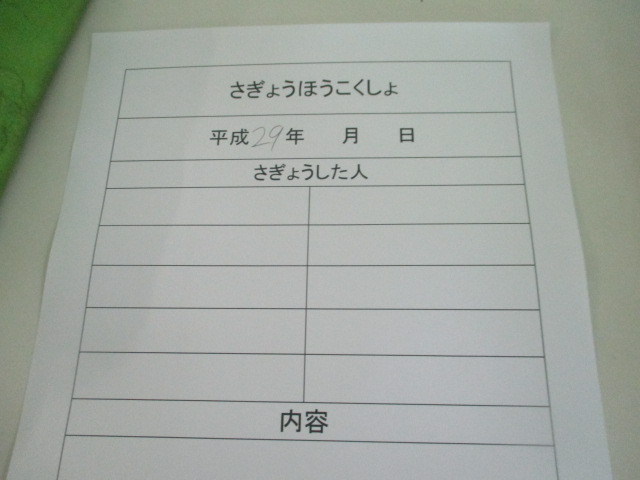 さぎょうほうこくしょ
平成29年 月 日
さぎょうした人
内容